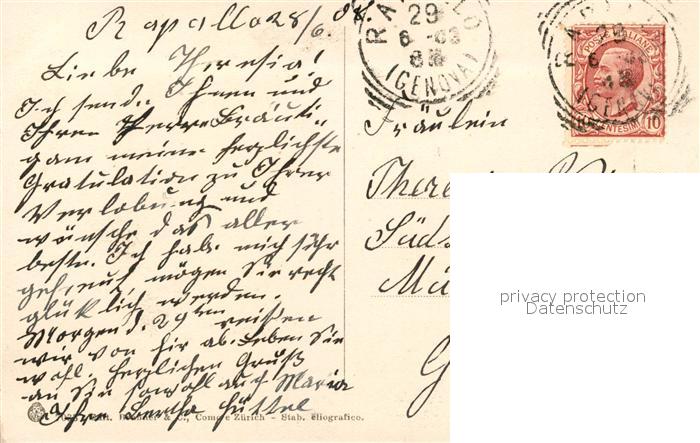 Rapallo 28/6. 08.
Liebe Theresia!
Ich sende Ihnen und
Ihren Herrn Bräuti-
gam meine herzlichste
Gratulation zu Ihrer
Verlobung und
wünsche das aller
beste. Ich hab mich sehr
gefreut, mögen Sie recht
glücklich werden.
Morgen d. 29ten reißen
wir von hir ab. Leben Sie
wohl. Herzlichen Gruß
an Sie sowohl auch Maria
Ihre Bertha Hüttel
& C., Como e Zürich - Stab. eliografico.
RAPALLO
29
6 -08
(GENOVA)
POSTE ITALIANE
CENTESIMI 10
29
(GENOVA)
Fräulein
There
Süds
Mü
G
privacy protection
Datenschutz